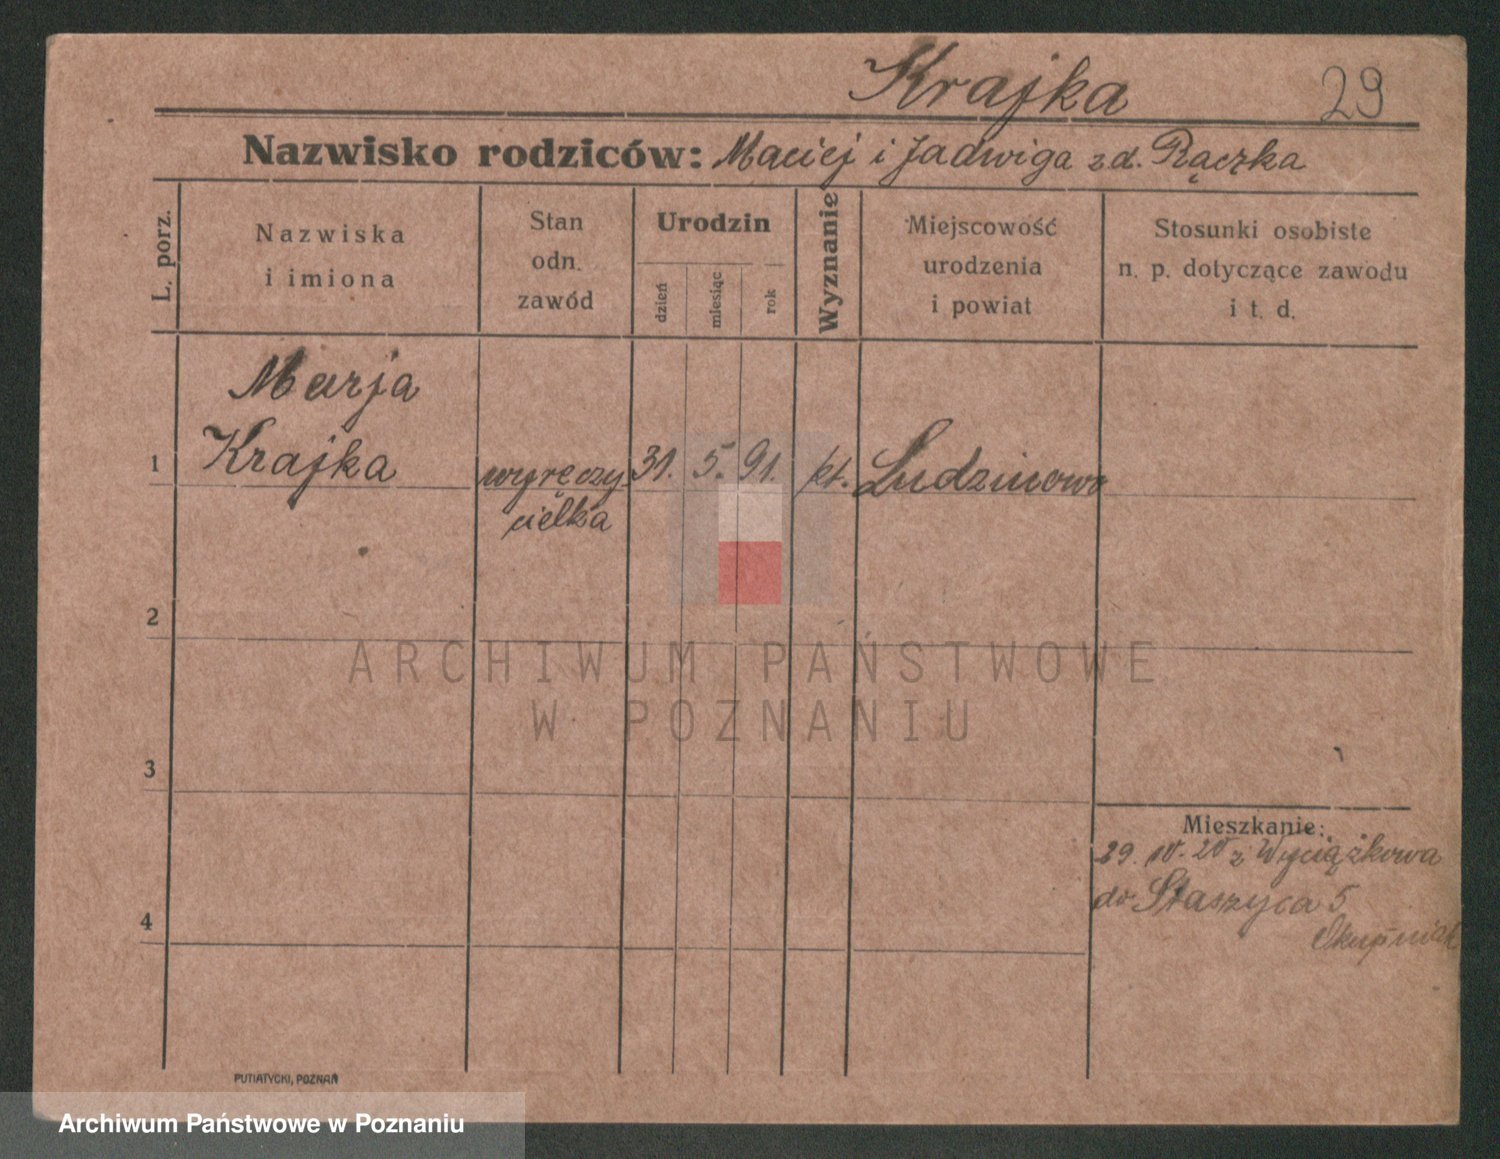 Krajka 29
Nazwisko rodziców: Maciej i Jadwiga z d. Rączka
L. porz.
Nazwiska
i imiona
Stan
odn.
zawód
Urodzin
dzień
miesiąc
rok
Wyznanie
Miejscowość
urodzenia
i powiat
Stosunki osobiste
n. p. dotyczące zawodu
i t. d.
Marja
1 Krajka wyręczy- 31. 5. 91. kt. Ludzinowo
cielka
2
ARCHIWUM PAŃSTWOWE
W POZNANIU
3
Mieszkanie:
29. IV. 20 z Wyciążkowa
do Staszyca 5
4
PUTIATYCKI, POZNAŃ
Archiwum Państwowe w Poznaniu